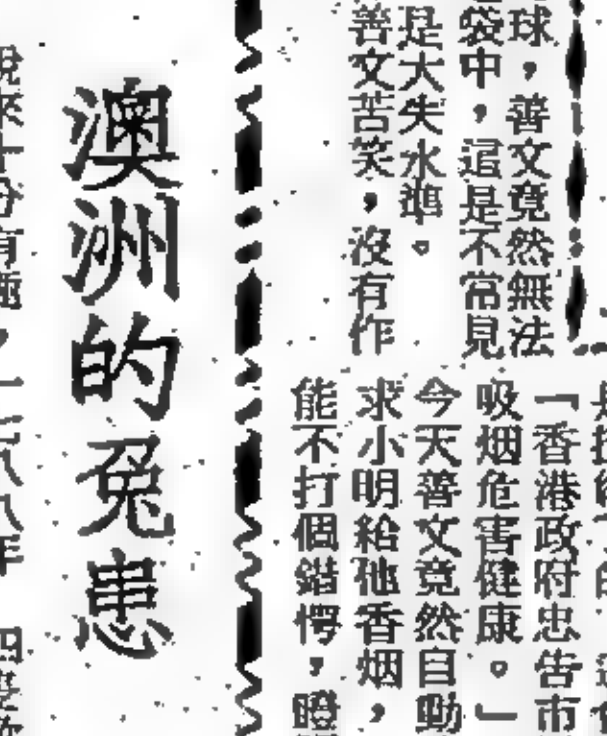 球，善文竟然無法
袋中，這是不常見
是大失水準。
善文苦笑，沒有作
「香港政府忠告市
吸烟危害健康。」
今天善文竟然自動
求小明給他香烟，
能不打個錯愕，瞪
澳洲的兔患
說來十分有趣，一八八年